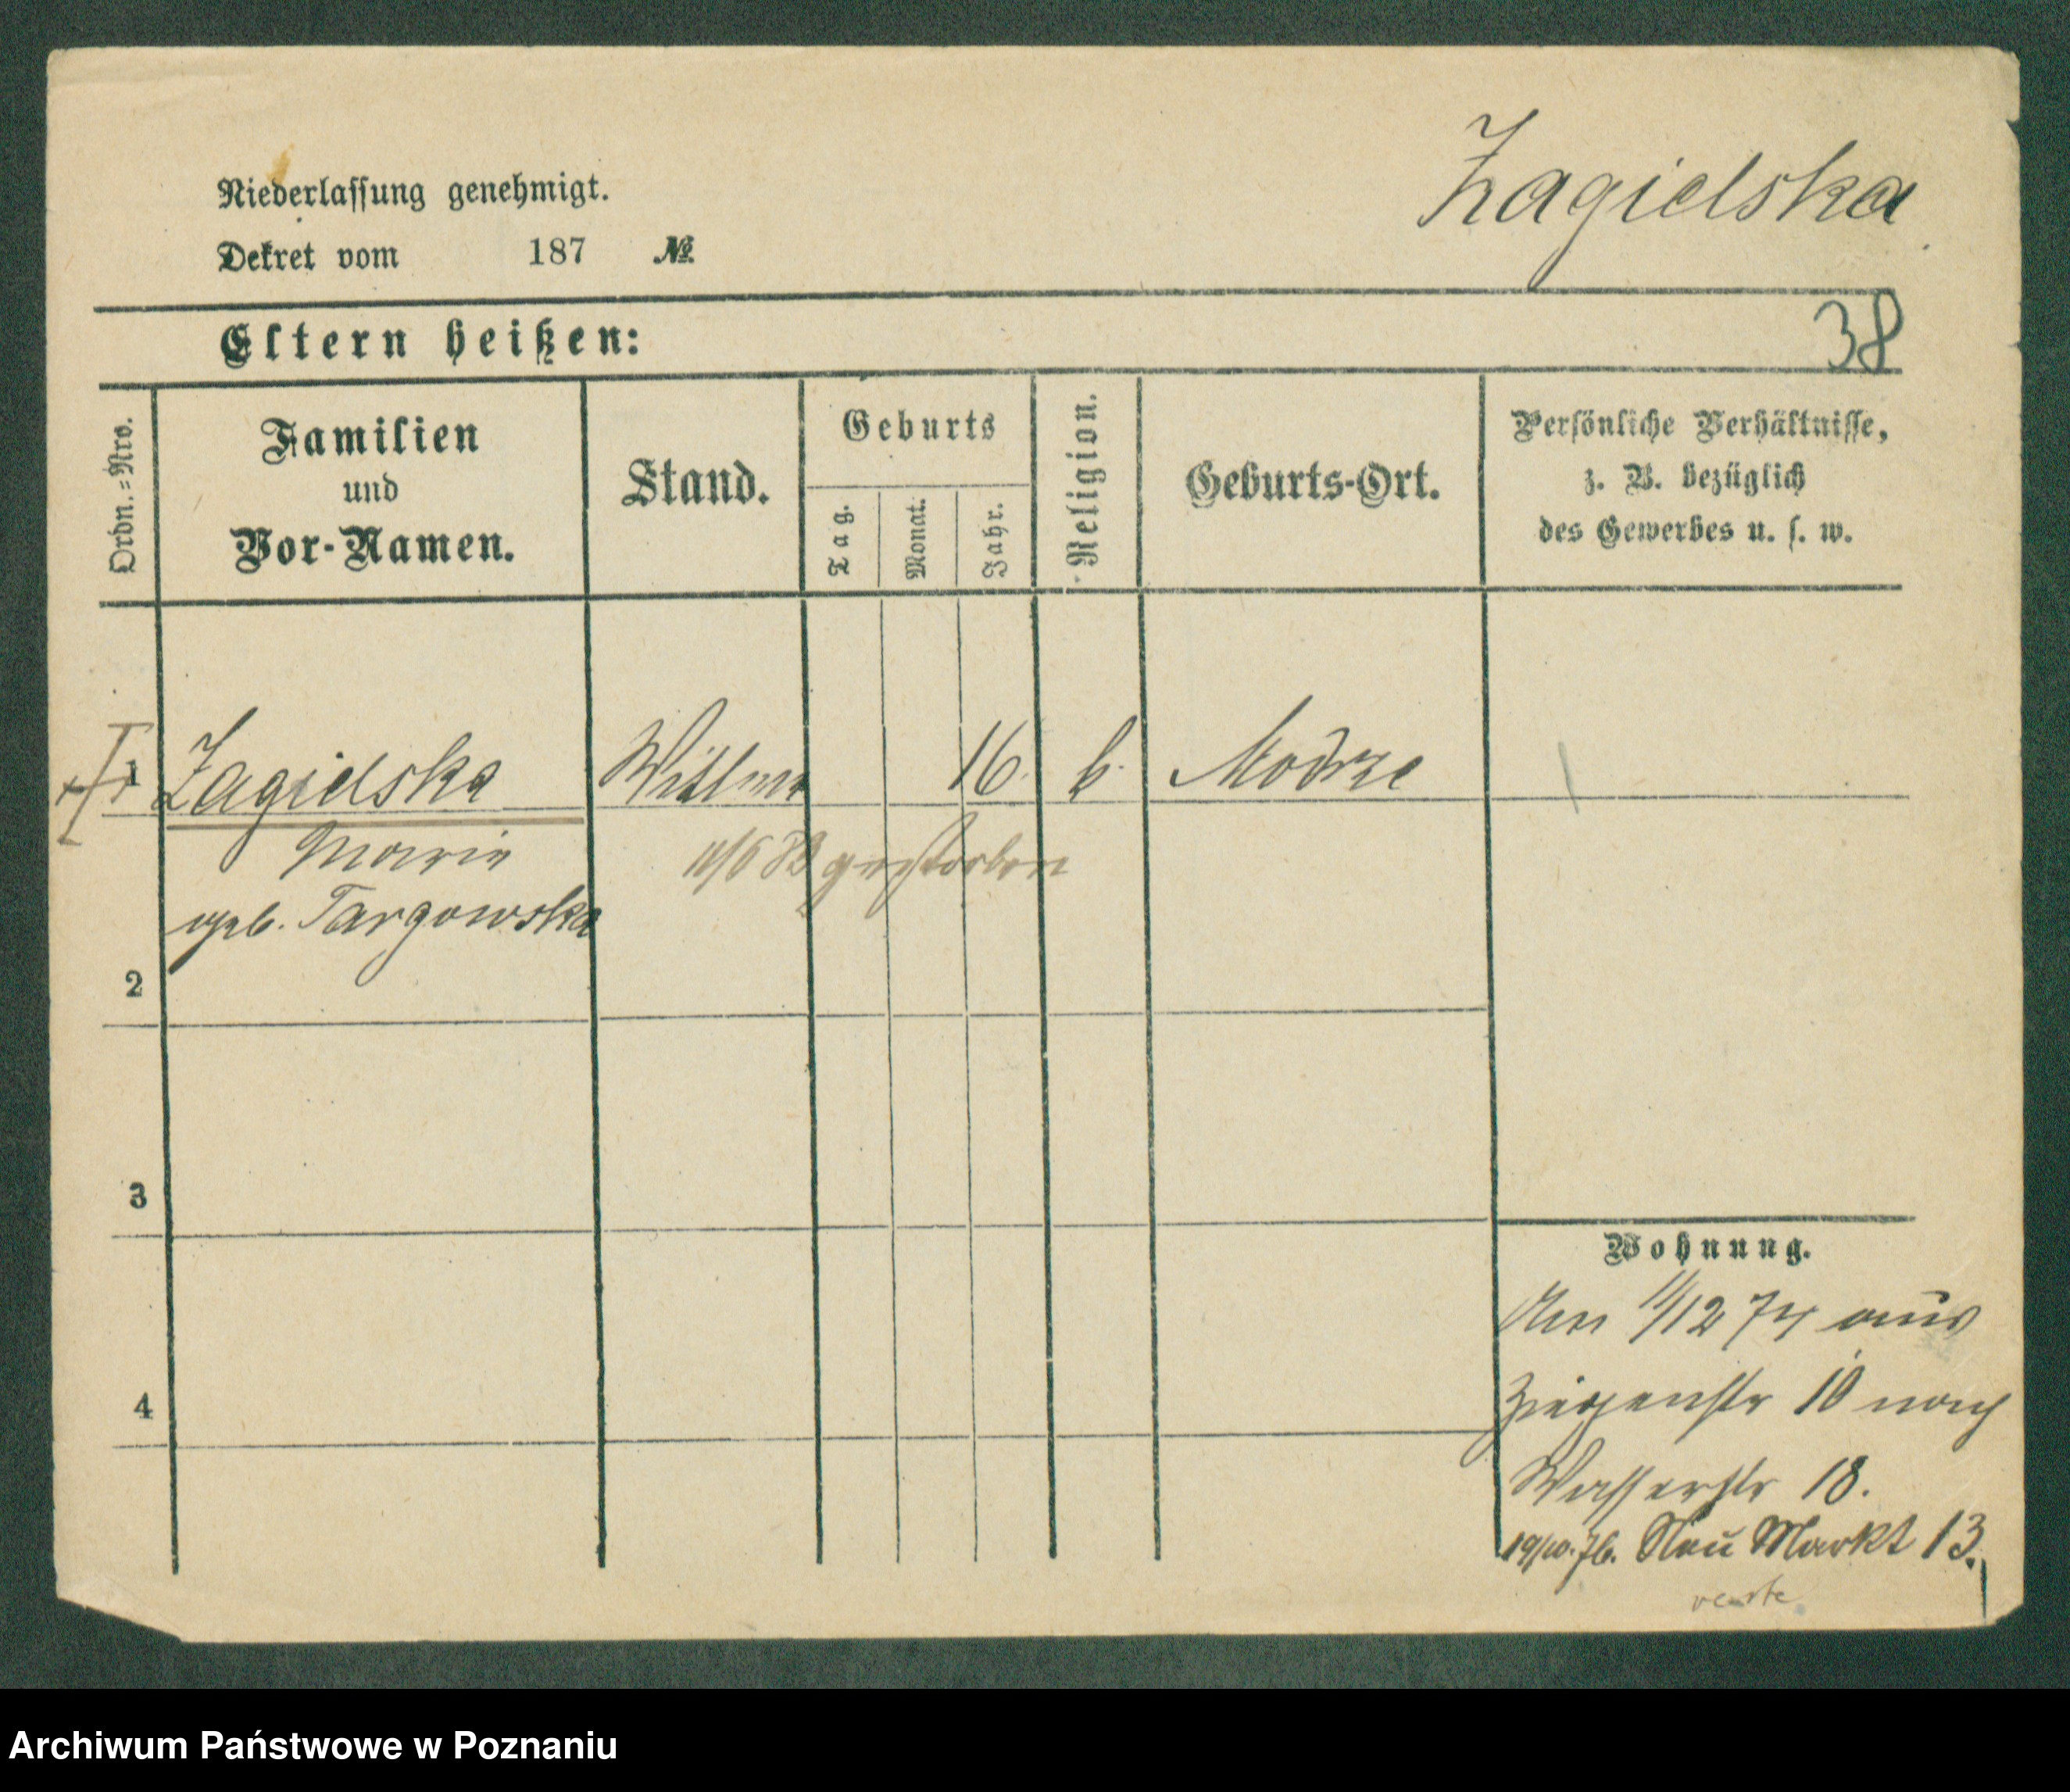 Zagielska
Niederlassung genehmigt.
Dekret vom 187 №
Eltern heißen:
38
Ordn.=Nro.
Familien
und
Vor-Namen.
Stand.
Geburts
Tag.
Monat.
Jahr.
Religion.
Geburts-Ort.
Persönliche Verhältnisse,
z. B. bezüglich
des Gewerbes u. s. w.
1 Zagielska Wittwe 16. k. Modrze
Marie gestorben
geb. Targowska
2
3
4
Wohnung.
11/12 74 aus
Ziegenstr 10 nach
Wasserstr 18.
19/10. 76. Neu Markt 13.
Archiwum Państwowe w Poznaniu